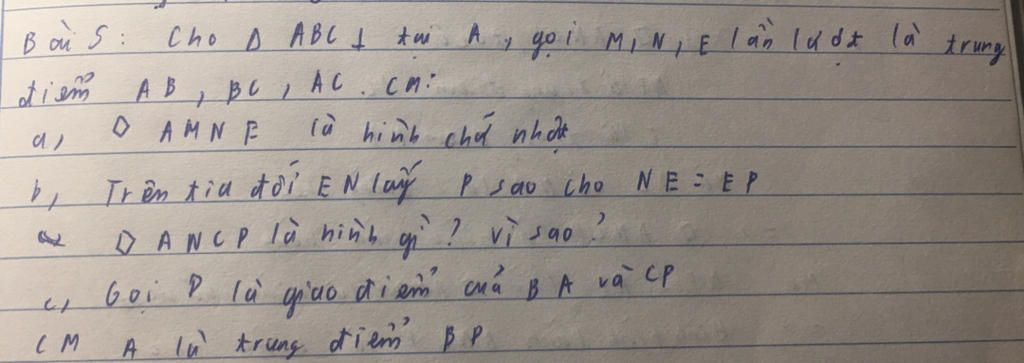 Bài 5: Cho Δ ABC ⊥ tại A, gọi M, N, E lần lượt là trung
điểm AB, BC, AC. CM:
a, □ AMNE là hình chữ nhật
b, Trên tia đối EN lấy P sao cho NE = EP
□ ANCP là hình gì? vì sao?
c, Gọi D là giao điểm của BA và CP
CM A là trung điểm BP